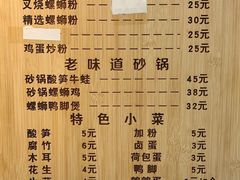 叉烧螺蛳粉 25元
精选螺蛳粉 25元
25元
鸡蛋炒粉 25元
老味道砂锅
砂锅酸笋牛蛙 45元
砂锅螺蛳鸡 38元
螺蛳鸭脚煲 32元
特色小菜
酸笋 5元 加粉 3元
腐竹 6元 卤蛋 3元
木耳 4元 荷包蛋 3元
花生 4元 鸭脚 5元